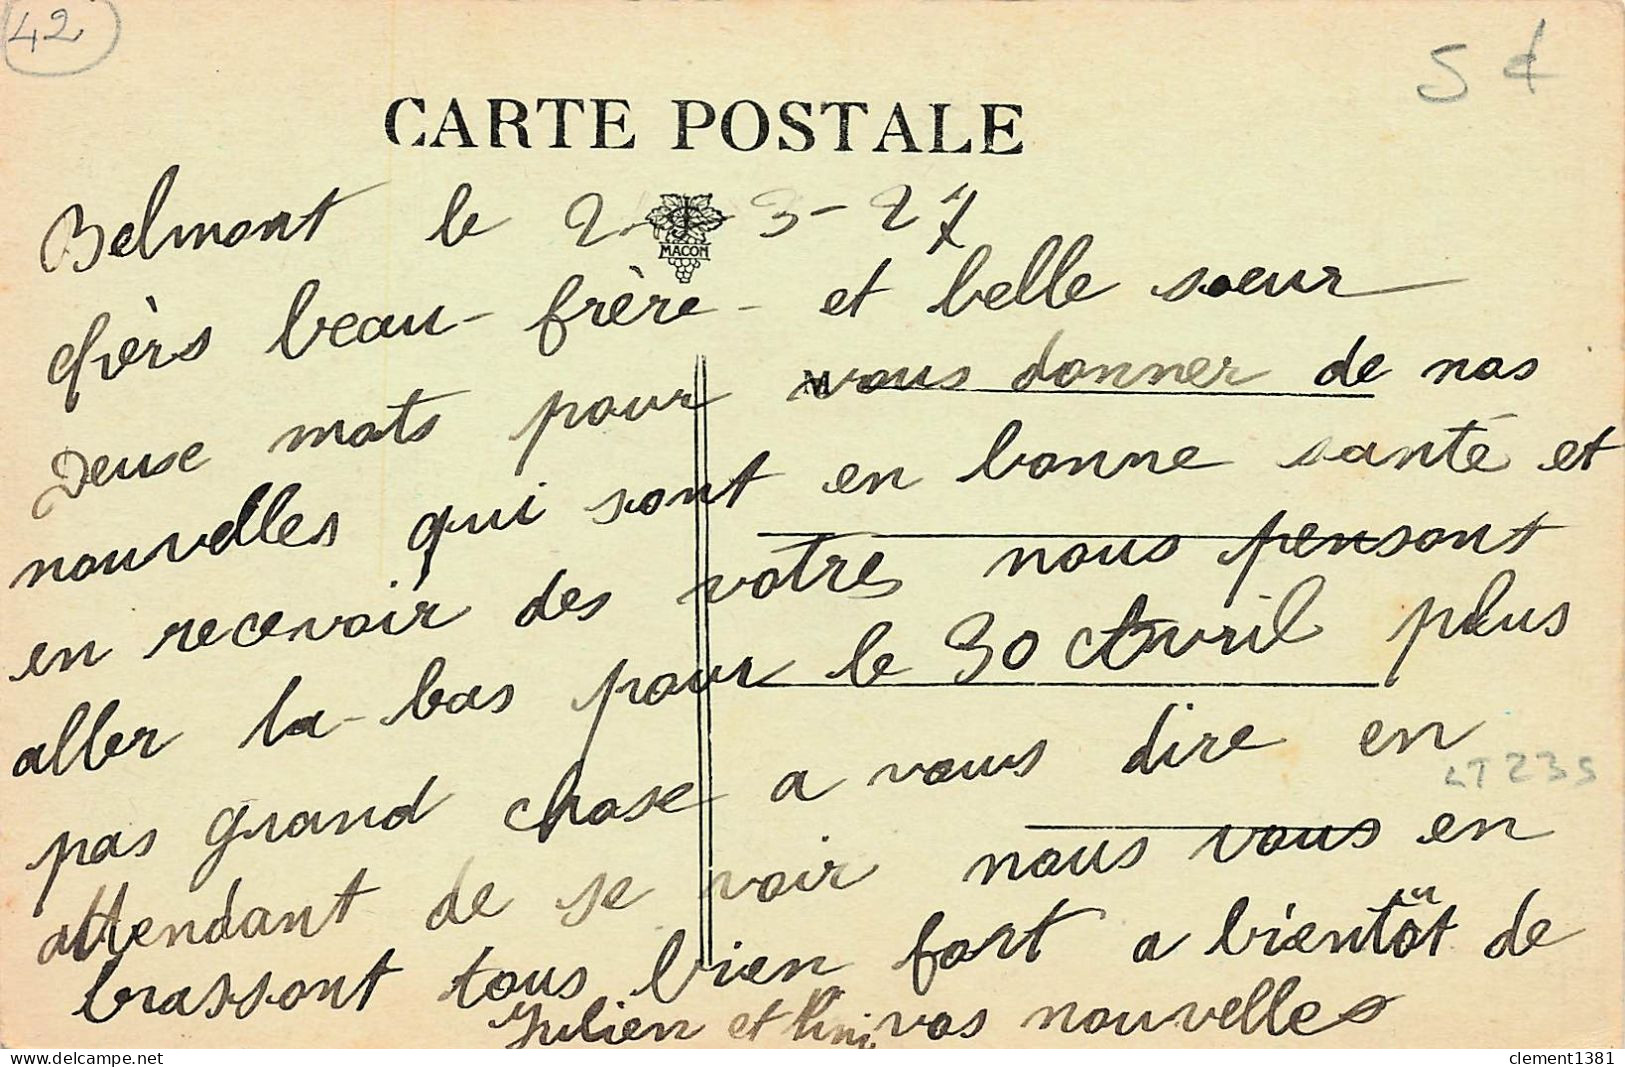 42
5 €
CARTE POSTALE
Belmont le 2-3-27
MACON
chèrs beau-frère - et belle sœur
Deuse mots pour vous donner de nos
nouvelles qui sont en bonne santé et
en recevoir des votres nous pensont
aller la-bas pour le 30 Avril plus
pas grand chose a vous dire en
LT 235
attendant de se voir nous vous en
brassont tous bien fort a bientôt de
Julien et vos nouvelles
clement1381